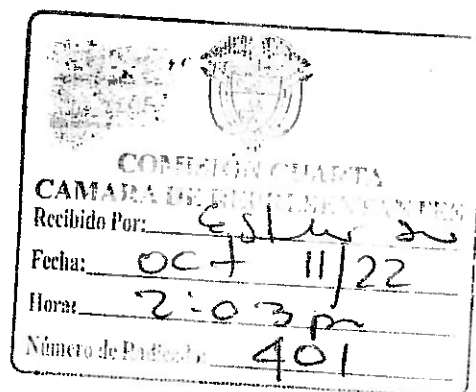 COMISIÓN CUARTA
CAMARA DE REPRESENTANTES
Recibido Por:
Fecha: OCT 11/22
Hora: 2:03 pm
Número de Radicado: 401